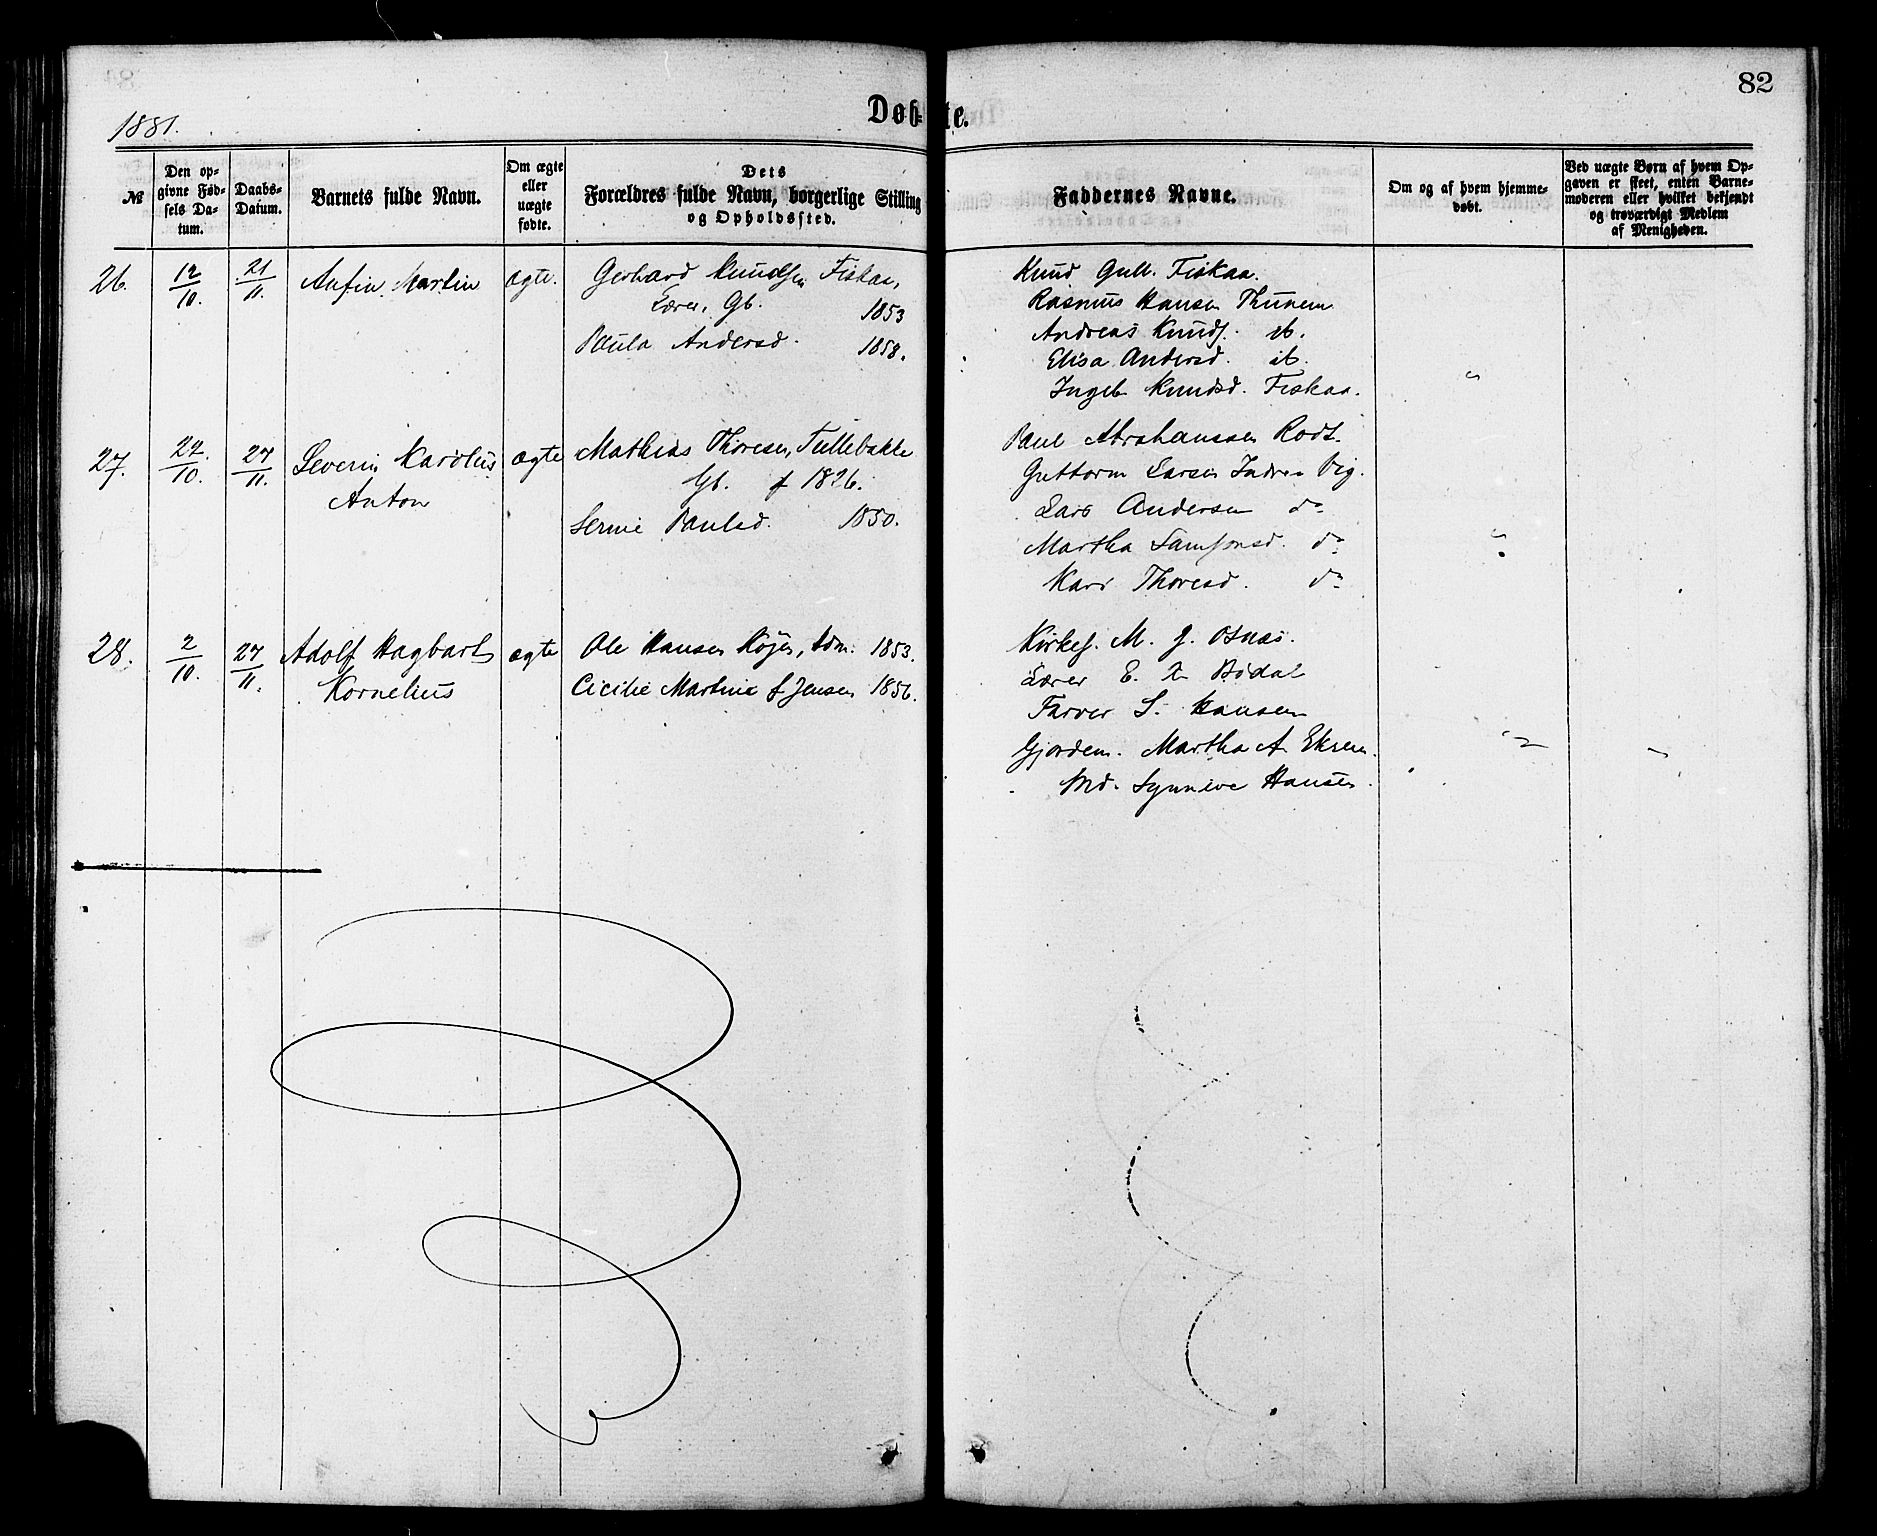 82
1881.
Døb- te.
№
Den op-
givne Fød-
sels Da-
tum.
Daabs-
Datum.
Barnets fulde Navn.
Om ægte
eller
uægte
fødte.
Dets
Forældres fulde Navn, borgerlige Stilling
og Opholdssted.
Faddernes Navne.
Om og af hvem hjemme-
døbt.
Ved uægte Børn af hvem Op-
gaven er skeet, enten Barne-
moderen eller hvilket bekjendt
og troværdigt Medlem
af Menigheden.
26. 12/10. 21/11. Anfin Martin ægte. Gerhard Knudsen Fiskaa,
Lærer, Gb. 1853
Paula Andersd. 1858.
Knud Gull. Fiskaa.
Rasmus Hansen Thunem
Andreas Knuds.
Elisa Andersd.
Ingeb Knudsd. Fiskaa.
27. 27/10. 27/11. Severin Karolus ægte Mathias Thoresen, Tullebakke
Anton Gb. f 1826.
Serine Paulsd. 1850.
Paul Abrahamsen Rodt.
Guttorm Larsen Indre Vig.
Lars Andersen do
Martha Samsonsd. do
Kari Thoresd. do
28. 2/10. 27/11. Adolf Hagbart ægte Ole Hansen Kojen, tdm. 1853.
Kornelius Cicilie Martine f Jensen 1856.
Kirkes. M. J. Osnæs.
Lærer E. Bødal
Farver S. Hansen
Gjordem. Martha A. Eksem.
Md. Synneve Hansen.